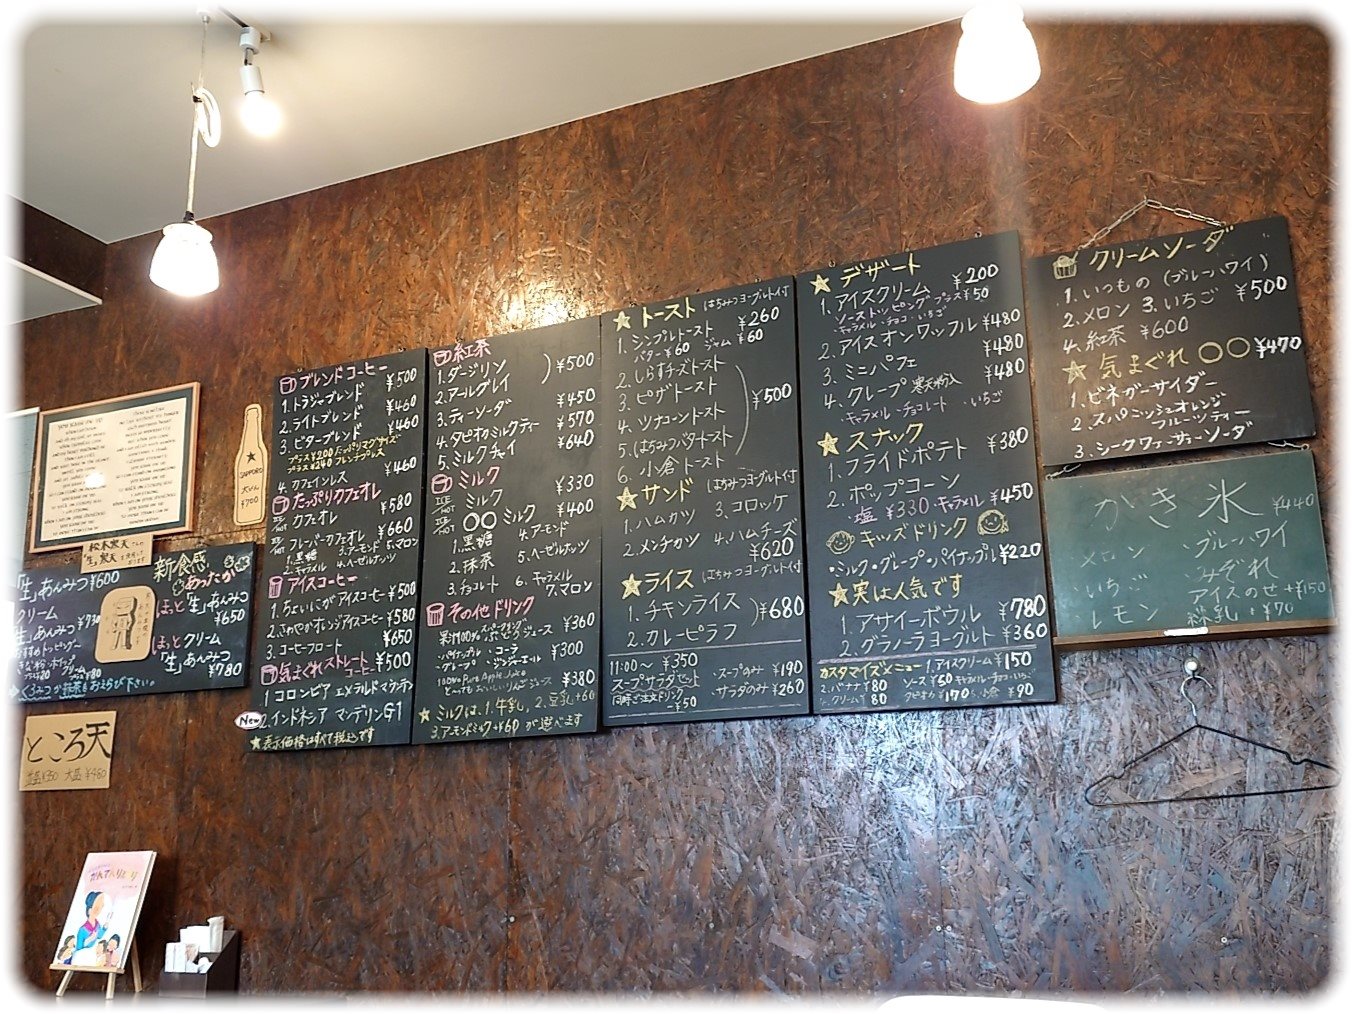 SAPPORO
大びん
¥700
松本寒天さんの
「生」寒天を使用して
おります
「生」あんみつ ¥600
クリーム
「生」あんみつ ¥730
おすすめトッピング〜
くろみつか抹茶をおえらび下さい。
新食感
あったか
ほっと「生」あんみつ
¥650
ほっとクリーム
「生」あんみつ
¥780
ところ天
大盛 ¥480
ブレンドコーヒー
1. トラジャブレンド ¥500
2. ライトブレンド ¥460
3. ビターブレンド ¥460
プラス¥200 たっぷりマグサイズ
プラス¥240 フレンチプレス
4. カフェインレス ¥460
たっぷりカフェオレ
ICE HOT カフェオレ ¥580
ICE HOT フレーバーカフェオレ ¥660
1. 黒糖 3. アーモンド 5. マロン
2. キャラメル 4. ヘーゼルナッツ
アイスコーヒー
1. ちょいにがアイスコーヒー ¥500
2. さわやかオレンジアイスコーヒー ¥580
3. コーヒーフロート ¥650
気まぐれストレートコーヒー ¥500
1. コロンビア エメラルドマウンテン
New 2. インドネシア マンデリンG1
★表示価格はすべて税込です
紅茶
1. ダージリン
2. アールグレイ ) ¥500
3. ティーソーダ ¥450
4. タピオカミルクティー ¥570
5. ミルクチャイ ¥640
ミルク
ICE HOT ミルク ¥330
ICE HOT ○○ミルク ¥400
1. 黒糖 4. アーモンド
2. 抹茶 5. ヘーゼルナッツ
3. チョコレート 6. キャラメル 7. マロン
その他ドリンク
果汁100% スパークリングぶどうジュース ¥360
・パイナップル ・コーラ
・グレープ ・ジンジャーエール ¥300
100% Pure Apple Juice
と〜ってもおいしいりんごジュース ¥380
★ミルクは、1. 牛乳、2. 豆乳+60
3. アーモンドミルク+¥60 が選べます
★トースト (はちみつヨーグルト付)
1. シンプルトースト ¥260
バター ¥60 ジャム ¥60
2. しらすチーズトースト
3. ピザトースト
4. ツナコーントースト ¥500
5. はちみつバタートースト
6. 小倉トースト
★サンド (はちみつヨーグルト付)
1. ハムカツ 3. コロッケ
2. メンチカツ 4. ハムチーズ
¥620
★ライス (はちみつヨーグルト付)
1. チキンライス
2. カレーピラフ ) ¥680
11:00〜 ¥350
スープサラダセット ・スープのみ ¥190
同時ご注文ドリンク ・サラダのみ ¥260
-¥50
★デザート
1. アイスクリーム ¥200
ソーストッピング プラス¥50
・キャラメル・チョコ・いちご
2. アイスオンワッフル ¥480
3. ミニパフェ ¥480
4. クレープ 寒天粉入 ¥480
・キャラメル・チョコレート ・いちご
★スナック
1. フライドポテト ¥380
2. ポップコーン
塩 ¥330 キャラメル ¥450
キッズドリンク
・ミルク・グレープ・パイナップル ¥220
★実は人気です
1. アサイーボウル ¥780
2. グラノーラヨーグルト ¥360
カスタマイズメニュー 1. アイスクリーム ¥150
2. バナナ ¥80 ソース ¥60 キャラメル・チョコ・いちご
4. クリーム ¥80 タピオカ ¥170 小倉 ¥90
クリームソーダ
1. いつもの (ブルーハワイ)
2. メロン 3. いちご ¥500
4. 紅茶 ¥600
★気まぐれ○○ ¥470
1. ビネガーサイダー
2. スパニッシュオレンジ
フルーツティー
3. シークヮーサーソーダ
かき氷 ¥440
メロン ブルーハワイ
いちご みぞれ
レモン アイスのせ +¥150
練乳 +¥70